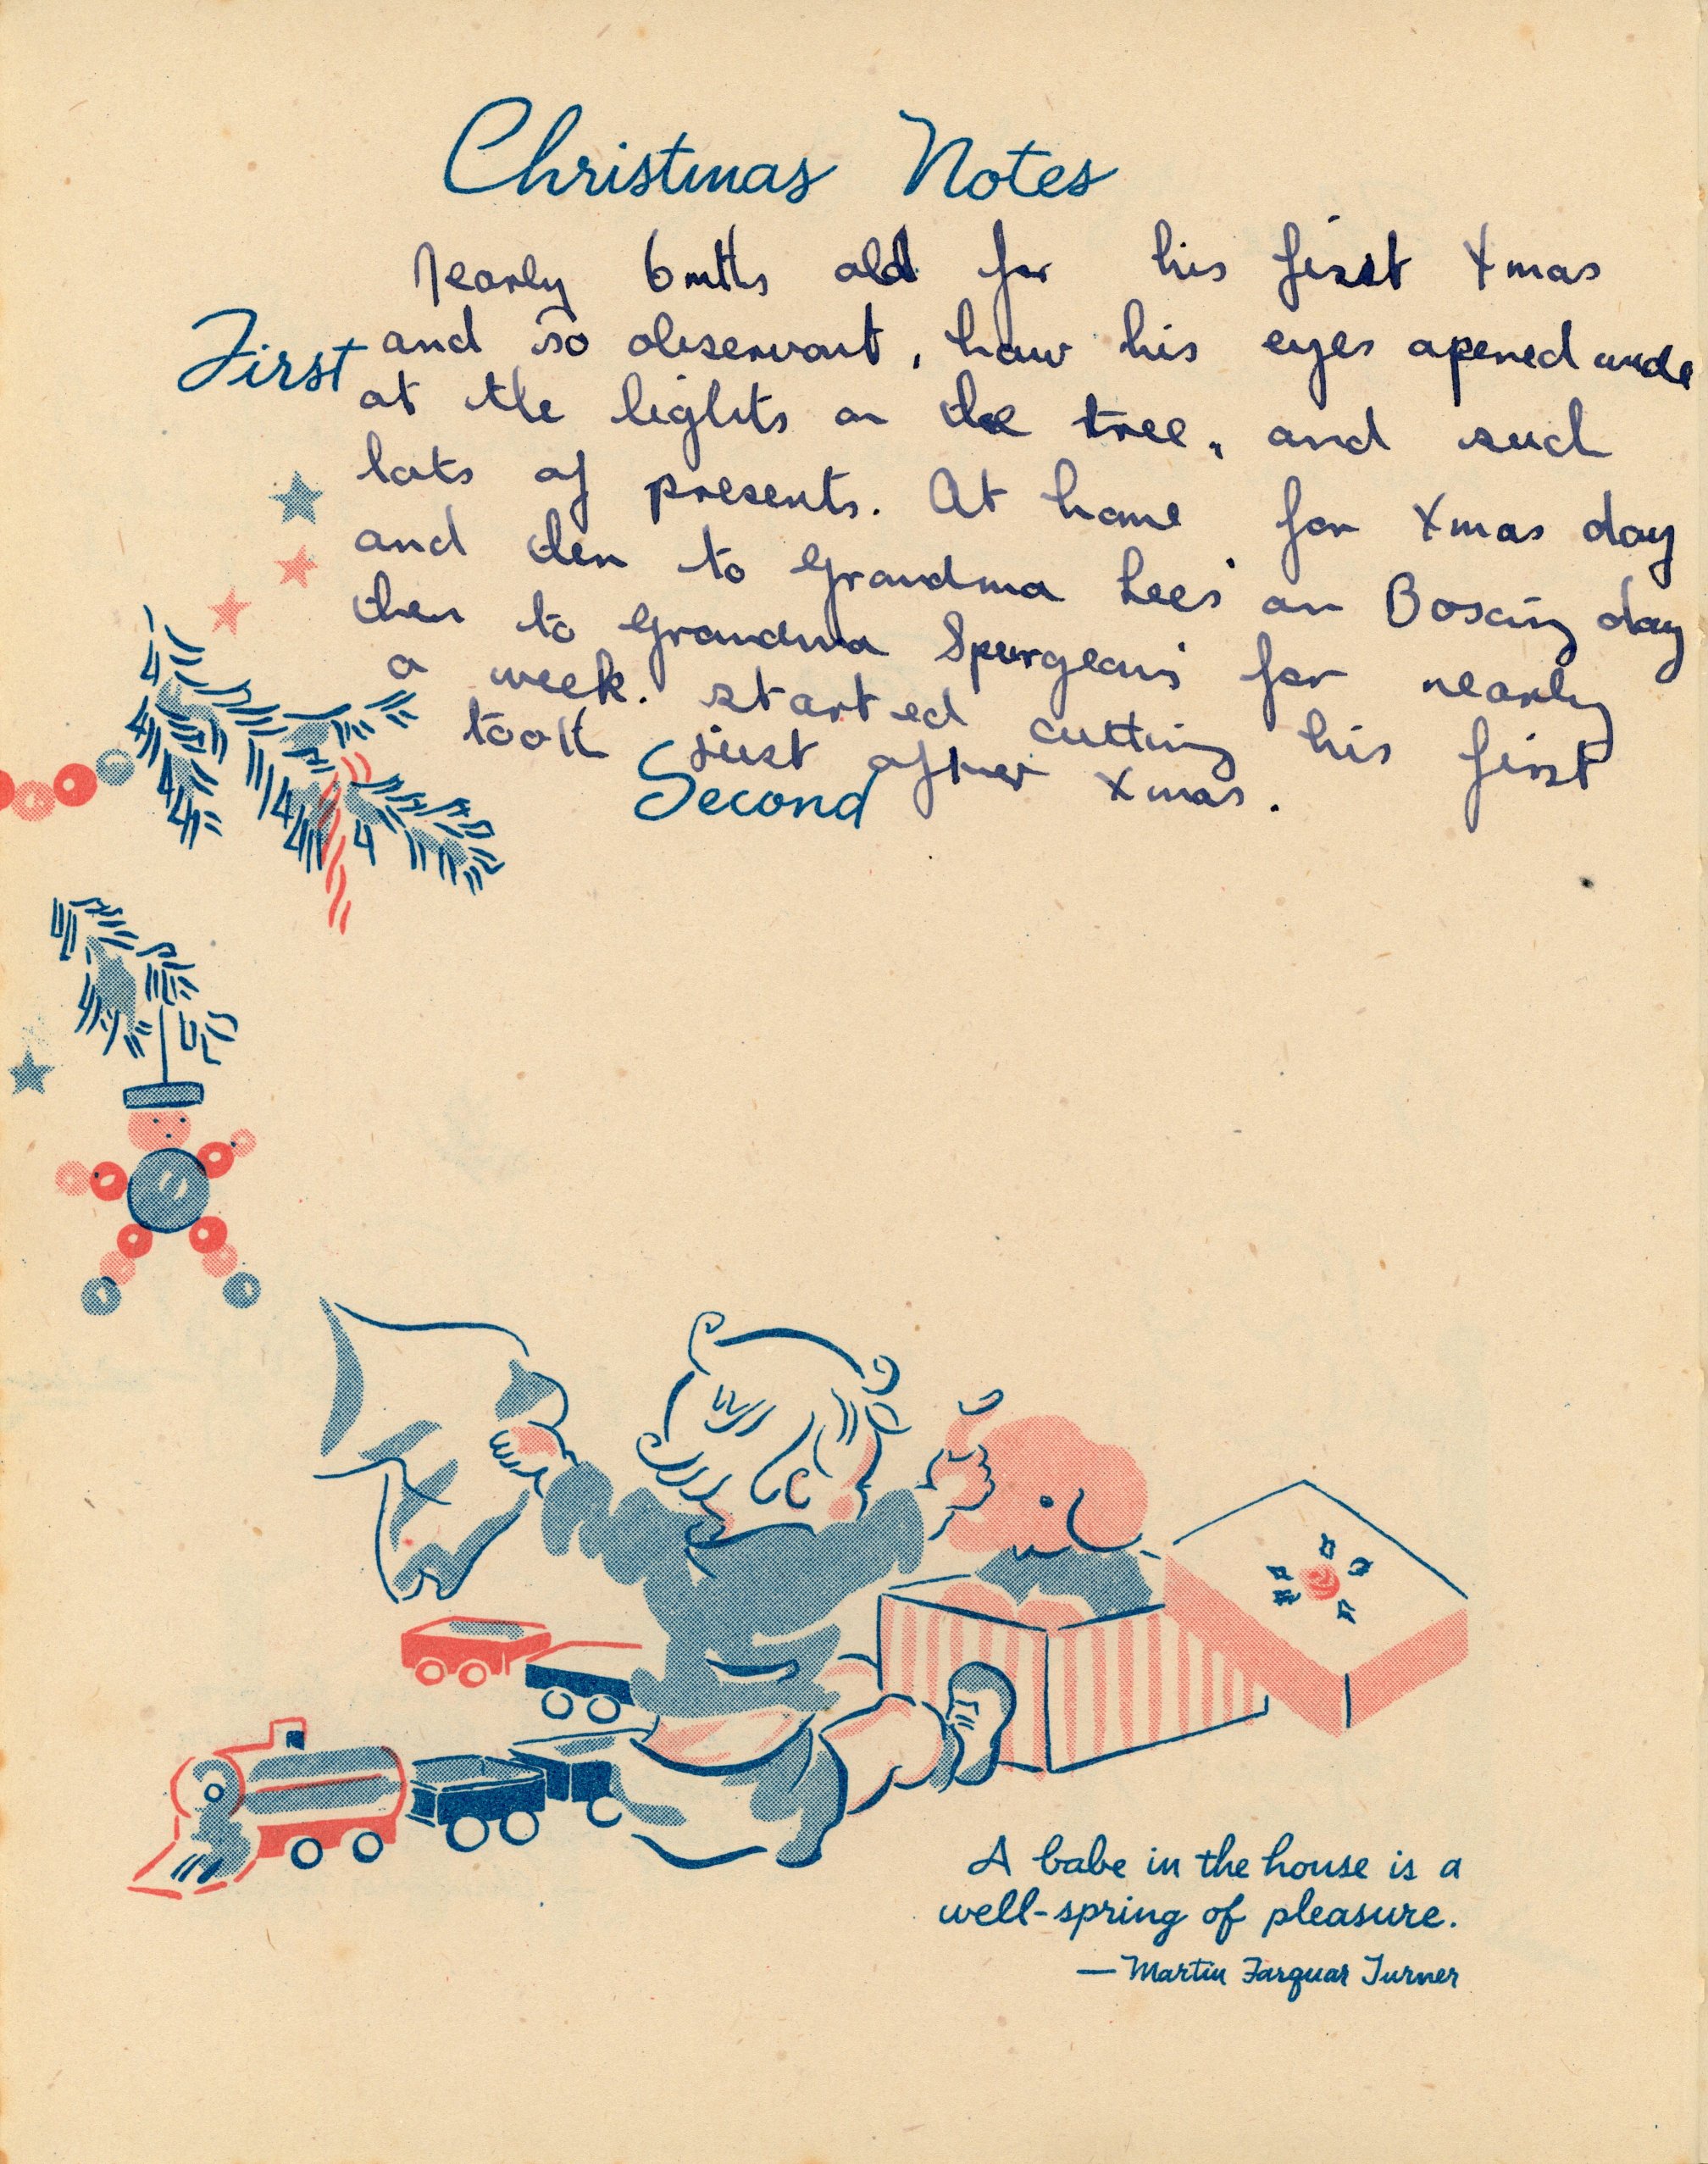 Christmas Notes
Nearly 6mths old for his first Xmas
First
and so observant, how his eyes opened wide
at the lights on the tree, and such
lots of presents. At home for Xmas day
and then to Grandma Lees' on Boxing day
then to Grandma Spurgeons' for nearly
a week. started cutting his first
tooth just after Xmas.
Second
A babe in the house is a
well-spring of pleasure.
— Martin Farquar Turner